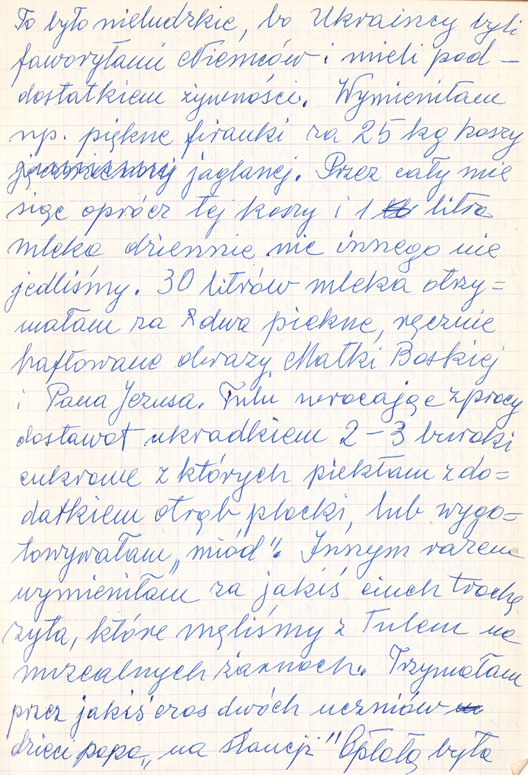 To było nieludzkie, bo Ukraińcy byli
faworytami Niemców i mieli pod-
dostatkiem żywności. Wymieniłam
np. piękne firanki za 25 kg kaszy
jaglanej. Przez cały mie
siąc oprócz tej kaszy i 1 litra
mleka dziennie nic innego nie
jedliśmy. 30 litrów mleka otrzy=
małam za dwa piękne, ręcznie
haftowane obrazy Matki Boskiej
i Pana Jezusa. Tulu wracając z pracy
dostawał ukradkiem 2-3 buraki
cukrowe z których piekłam z do=
datkiem otrąb placki, lub wygo=
towywałam „miód". Innym razem
wymieniłam za jakiś ciuch trochę
żyta, które mełliśmy z Tulem na
żarnach. Trzymałam
przez jakiś czas dwóch uczniów
dzieci popa, „na stancji" Opłatą była